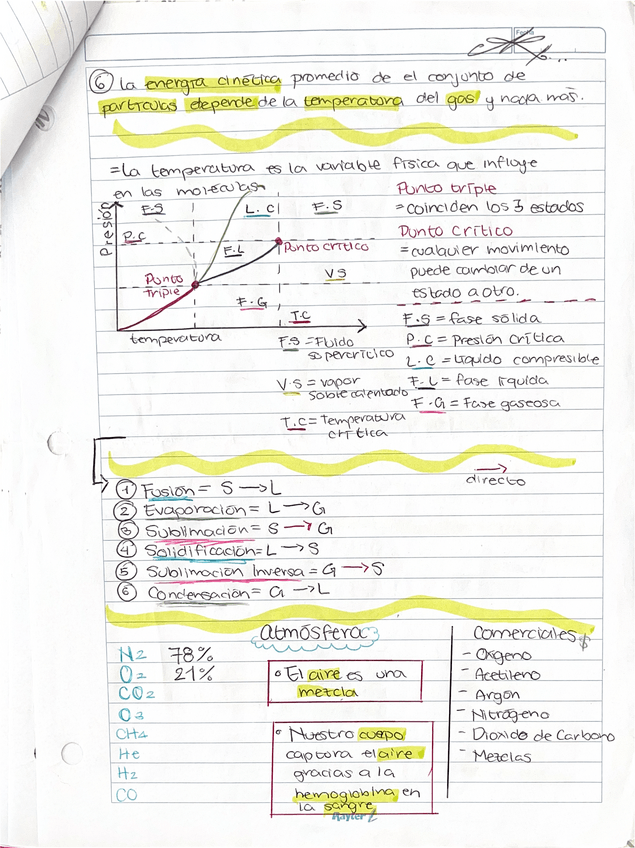 Fecha
⑥ La energía cinética promedio de el conjunto de
partículas depende de la temperatura del gas y nada más.
=La temperatura es la variable física que influye
en las moléculas
Presión
F.S
L.C
F.S
P.C
F.L
Punto crítico
Punto
triple
V.S
F.G
T.C
temperatura
F.S = Fluido
supercrítico
V.S = vapor
sobrecalentado
T.C = Temperatura
crítica
Punto triple
=coinciden los 3 estados
Punto crítico
=cualquier movimiento
puede cambiar de un
estado a otro.
F.S = fase sólida
P.C = Presión crítica
L.C = Líquido compresible
F.L = fase líquida
F.G = Fase gaseosa
→
directo
① Fusión = S → L
② Evaporación = L → G
③ Sublimación = S → G
④ Solidificación = L → S
⑤ Sublimación Inversa = G → S
⑥ Condensación = G → L
Atmósfera
N2 78%
O2 21%
CO2
O3
CH4
He
H2
CO
° El aire es una
mezcla
° Nuestro cuerpo
captura el aire
gracias a la
hemoglobina en
la sangre
Comerciales $
- Oxígeno
- Acetileno
- Argón
- Nitrógeno
- Dioxido de Carbono
- Mezclas